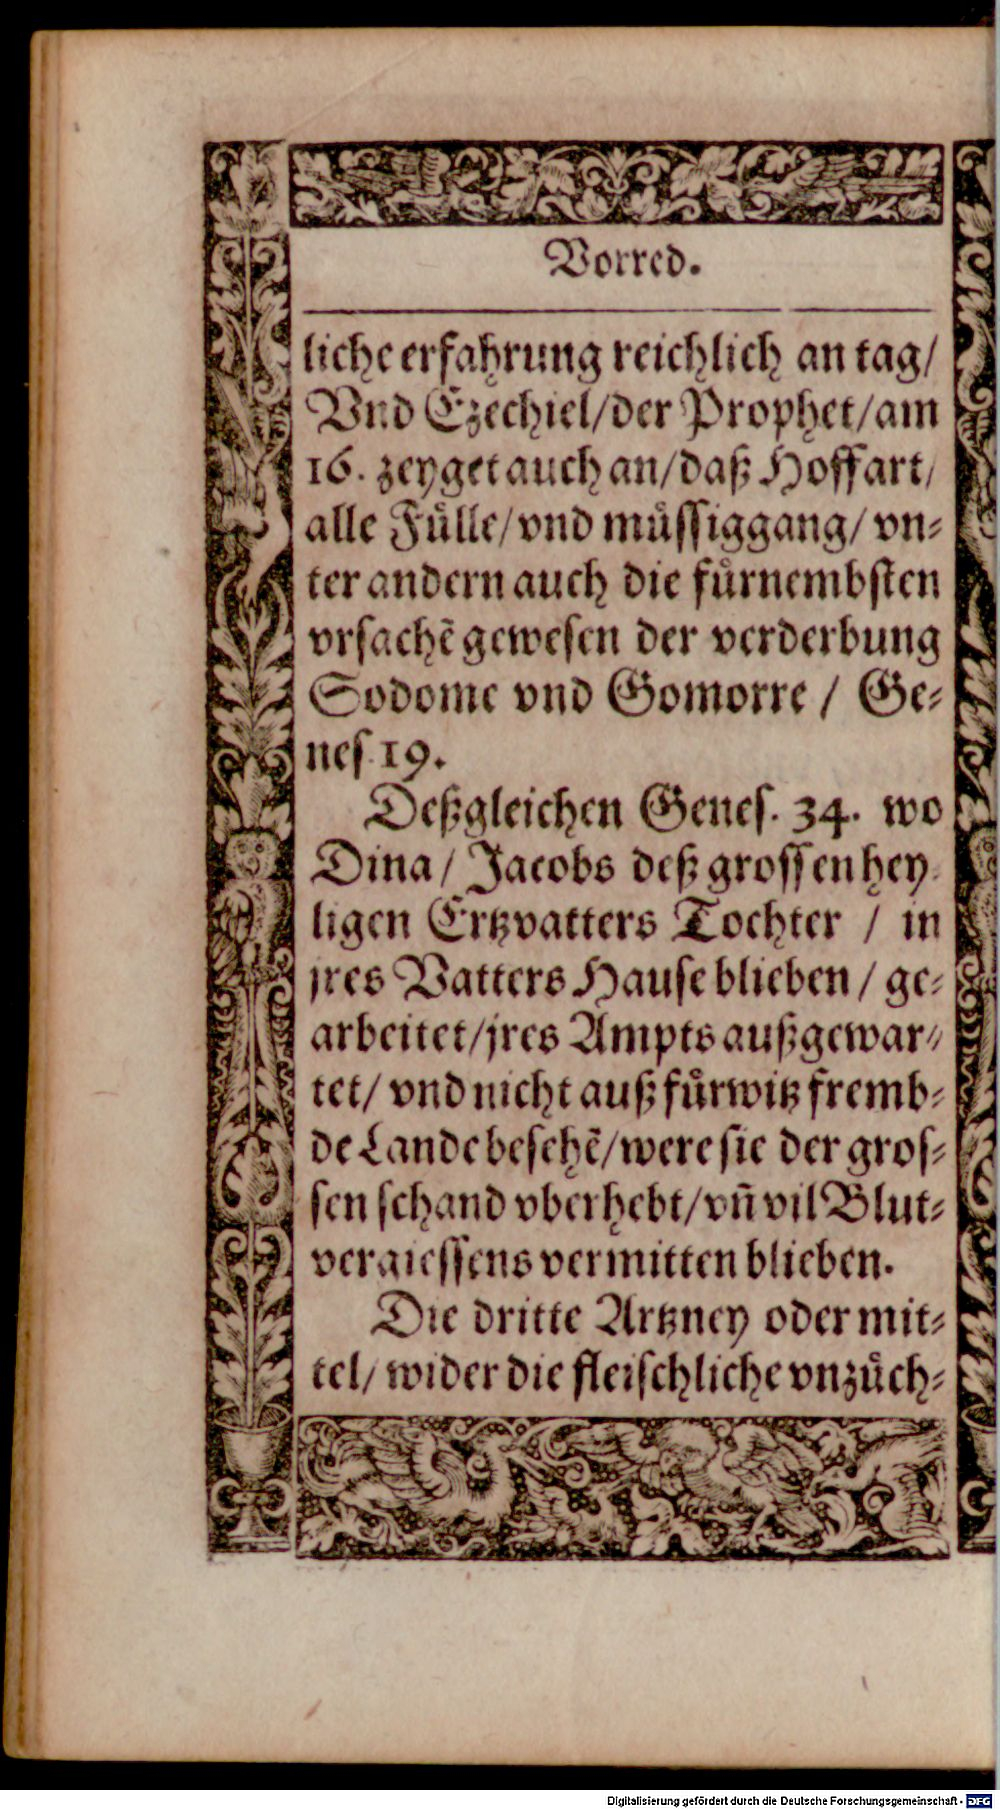 Vorred.
liche erfahrung reichlich an tag/
Vnd Ezechiel/der Prophet/am
16. zeyget auch an/daß Hoffart/
alle Fuͤlle/vnd muͤssiggang/ vn⸗
ter andern auch die fuͤrnembsten
vrsachẽ gewesen der verderbung
Sodome vnd Gomorre / Ge⸗
nes. 19.
Deßgleichen Genes. 34. wo
Dina/ Jacobs deß grossen hey⸗
ligen Ertzvatters Tochter / in
jres Vatters Hause blieben / ge⸗
arbeitet/jres Ampts außgewar⸗
tet/ vnd nicht auß fuͤrwitz fremb⸗
de Lande besehẽ/were sie der gros⸗
sen schand vberhebt/vñ vil Blut⸗
vergiessens vermitten blieben.
Die dritte Artzney oder mit⸗
tel/ wider die fleischliche vnzuͤch⸗
Digitalisierung gefördert durch die Deutsche Forschungsgemeinschaft - DFG